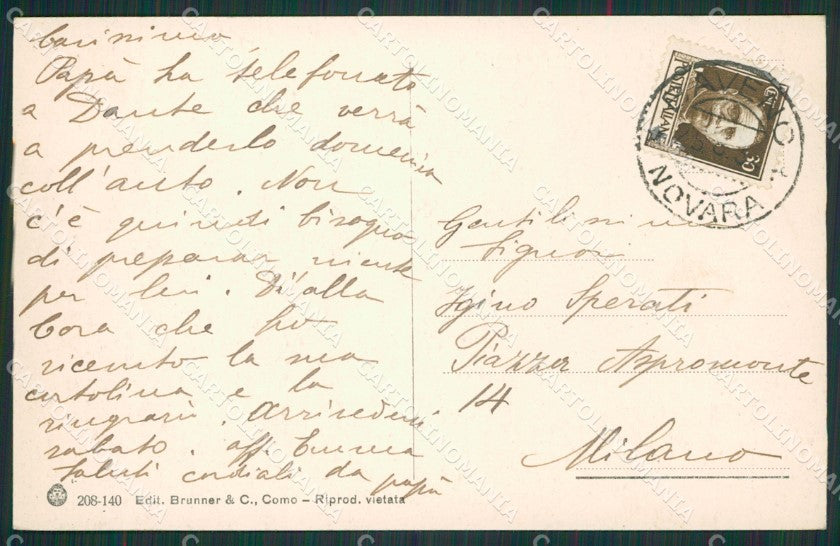 Carissimo,
Papà ha telefonato
a Dante che verrà
a prenderlo domenica
coll'auto. Non
c'è quindi bisogno
di preparar niente
per lui. Di' alla
Cora che ho
ricevuto la sua
cartolina e la
ringrazi. Arrivederci
sabato. aff. Emma
Saluti cordiali da papà
Gentilissimo
Signor
Igino Sperati
Piazza Aspromonte
14
Milano
NOVARA
208-140 Edit. Brunner & C., Como – Riprod. vietata
CARTOLINOMANIA